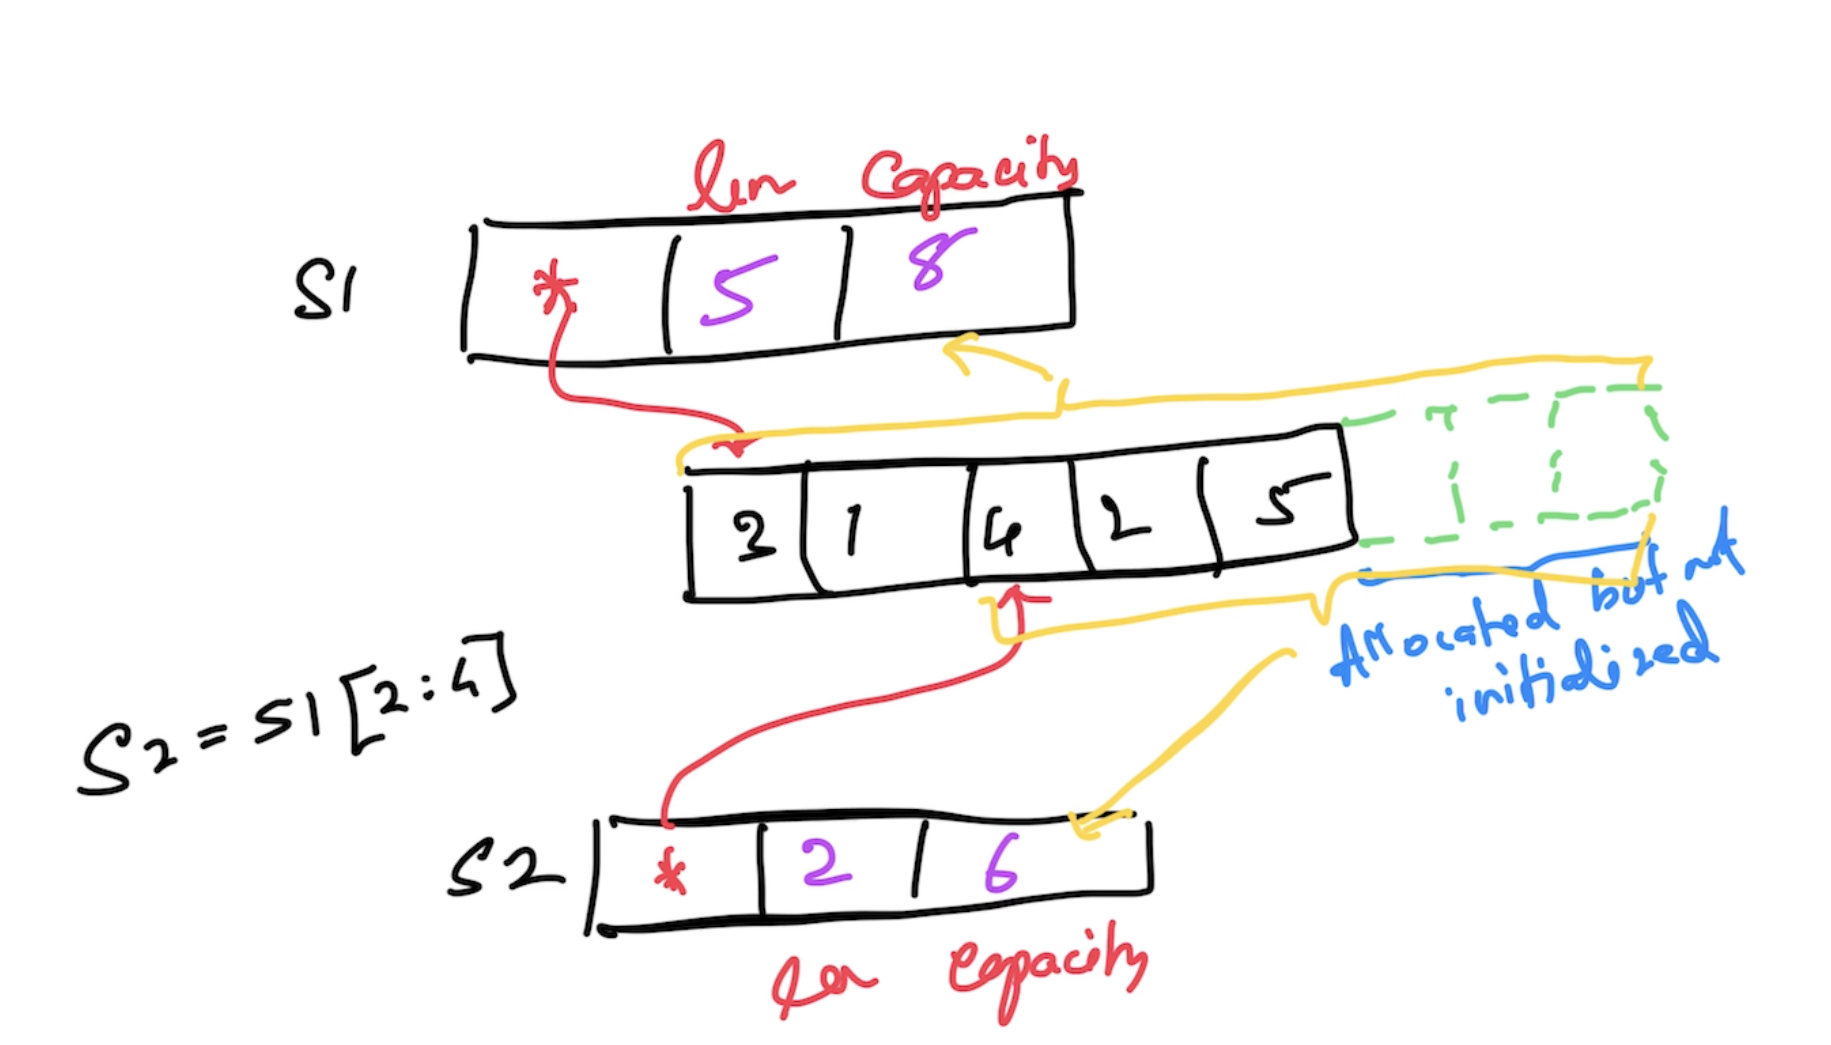 len Capacity
S1 * 5 8
3 1 4 2 5
Allocated but not
initialized
S2 = S1[2:4]
S2 * 2 6
len Capacity